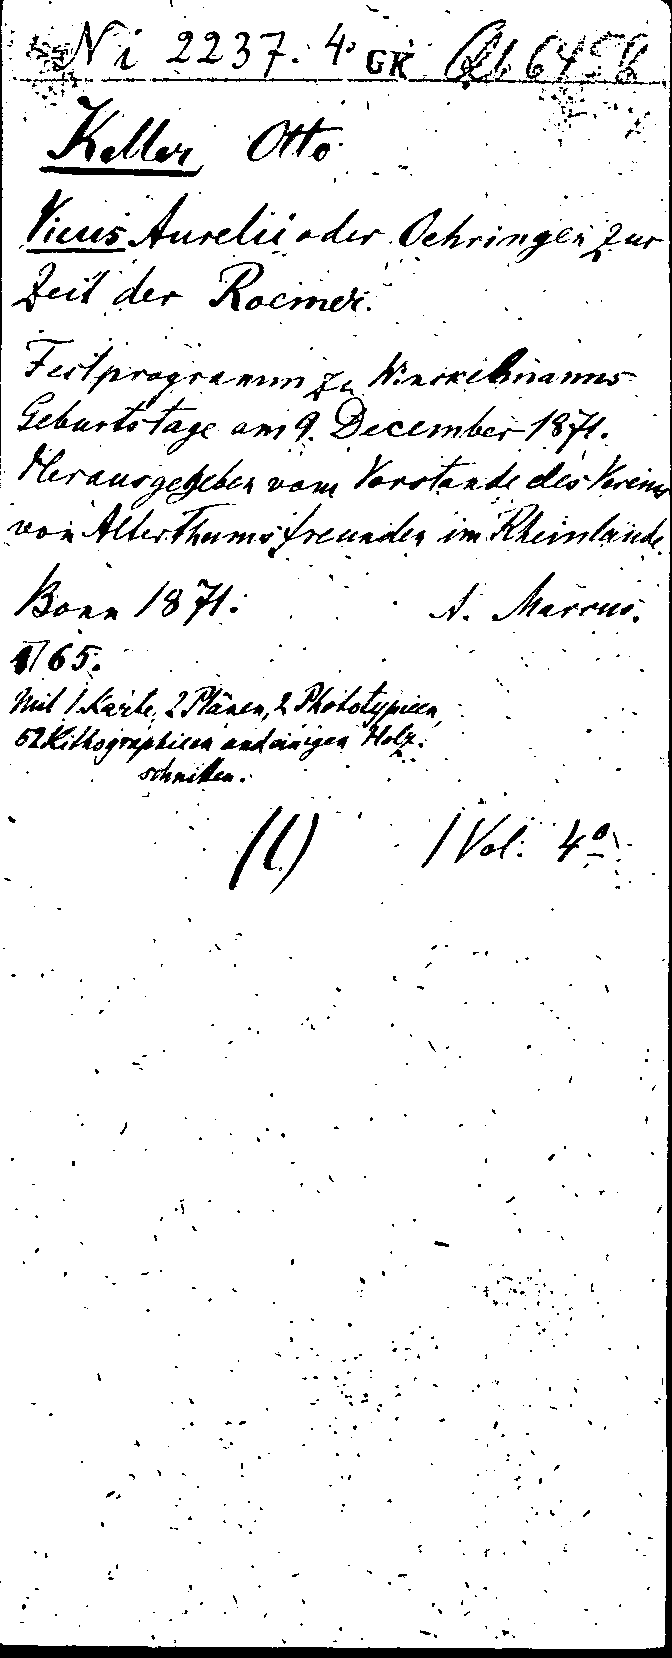 Ni 2237. 4° GK Qb 6456
Keller Otto
Vicus Aurelii oder Oehringen zur
Zeit der Roemer.
Festprogramm zu Winckelmanns
Geburtstage am 9. December 1871.
Herausgegeben vom Vorstande des Vereins
von Alterthumsfreunden im Rheinlande.
Bonn 1871. A. Marcus.
65.
Mit 1 Karte, 2 Plänen, 2 Phototypieen,
52 Lithographieen und einigen Holz-
schnitten.
(l) 1 Vol. 4°